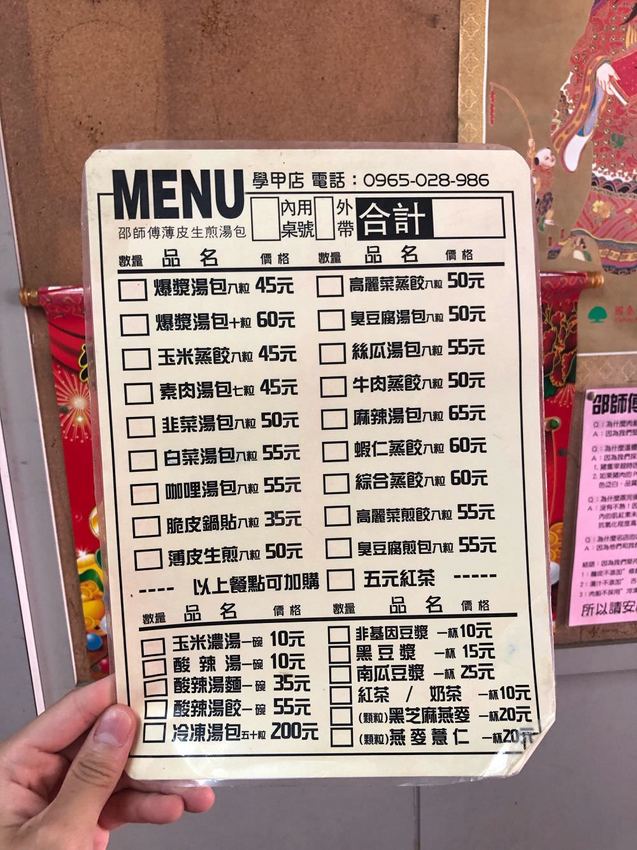 MENU
學甲店 電話：0965-028-986
邵師傅薄皮生煎湯包
內用桌號
外帶
合計
數量 品名 價格 數量 品名 價格
爆漿湯包八粒 45元
高麗菜蒸餃八粒 50元
爆漿湯包十粒 60元
臭豆腐湯包八粒 50元
玉米蒸餃八粒 45元
絲瓜湯包八粒 55元
素肉湯包七粒 45元
牛肉蒸餃八粒 50元
韭菜湯包八粒 50元
麻辣湯包八粒 65元
白菜湯包八粒 55元
蝦仁蒸餃八粒 60元
咖哩湯包八粒 55元
綜合蒸餃八粒 60元
脆皮鍋貼八粒 35元
高麗菜煎餃八粒 55元
薄皮生煎八粒 50元
臭豆腐煎包八粒 55元
----- 以上餐點可加購 五元紅茶 -----
數量 品名 價格 數量 品名 價格
玉米濃湯一碗 10元
非基因豆漿 一杯10元
酸辣湯一碗 10元
黑豆漿 一杯 15元
酸辣湯麵一碗 35元
南瓜豆漿 一杯 25元
酸辣湯餃一碗 55元
紅茶 / 奶茶 一杯10元
冷凍湯包五十粒 200元
(顆粒)黑芝麻燕麥 一杯20元
(顆粒)燕麥薏仁 一杯20元
邵師傅
所以請安